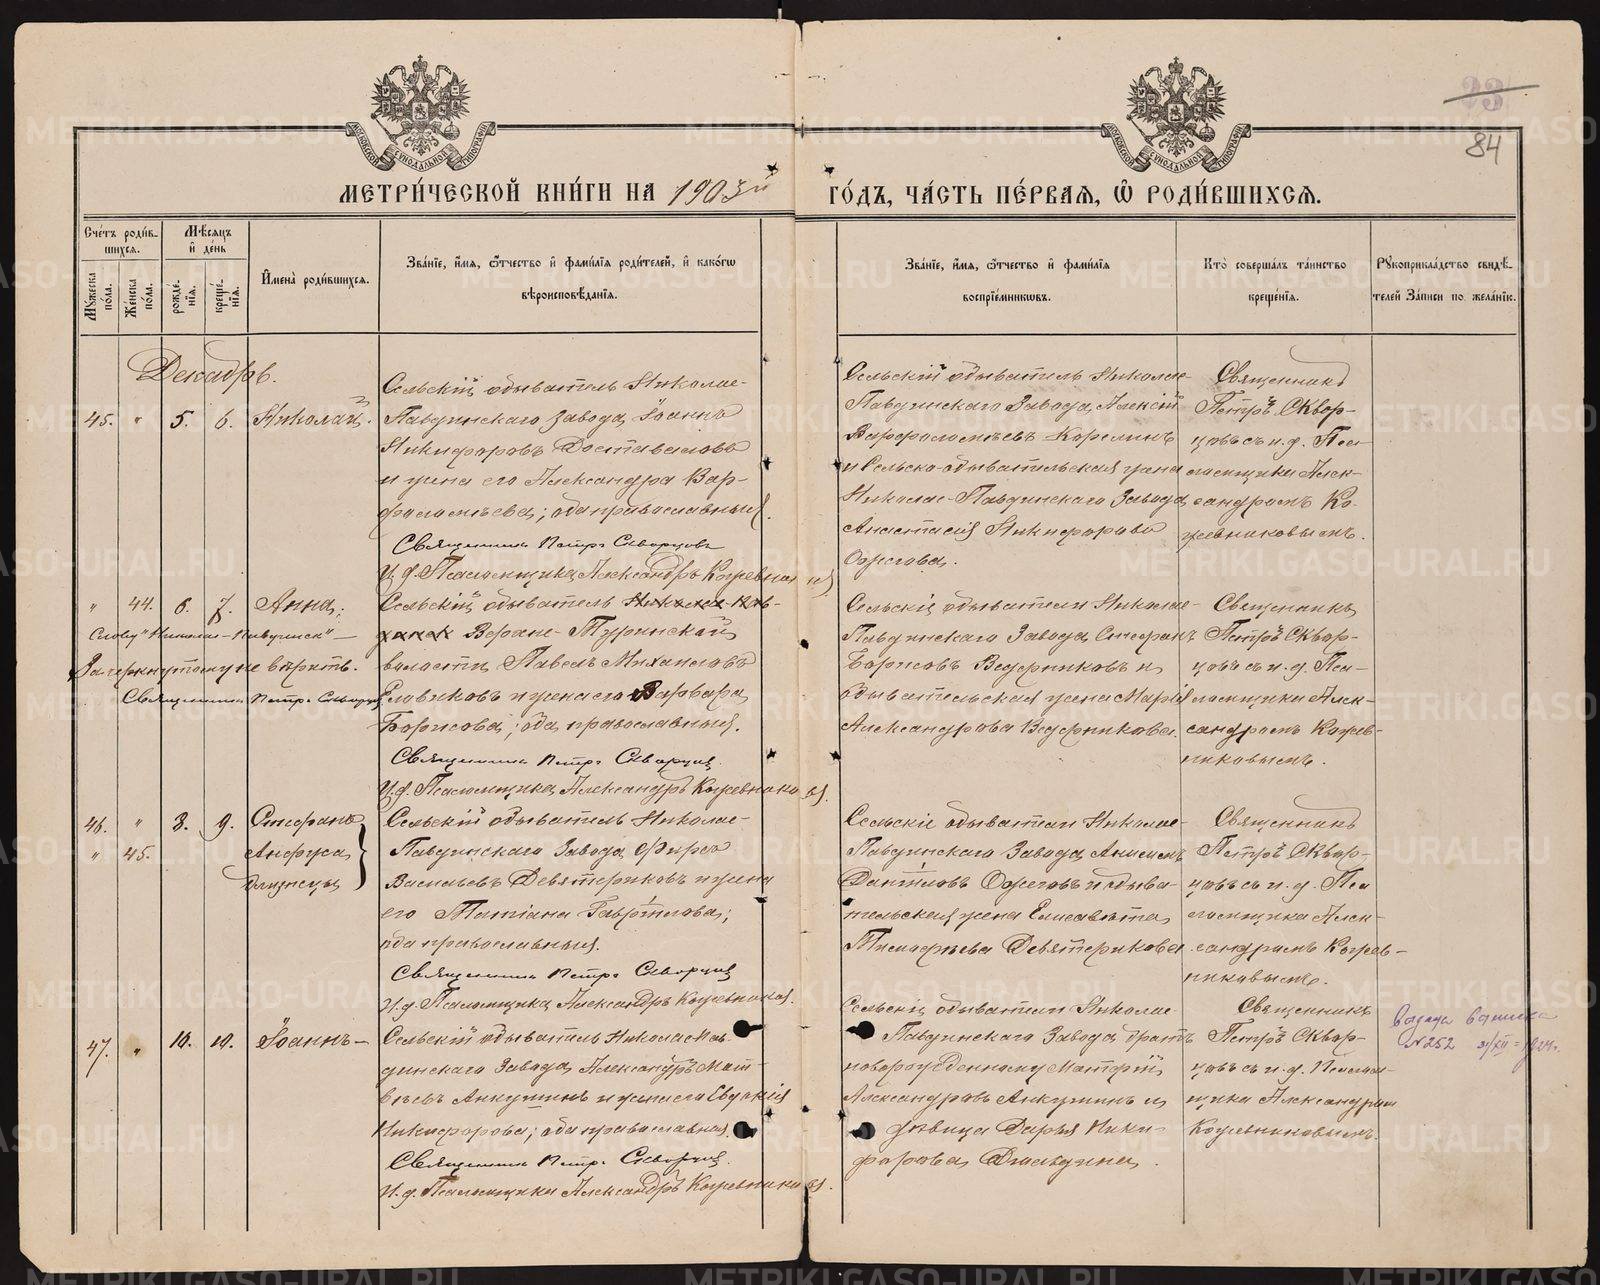 23
84
МЕТРИ́ЧЕСКОЙ КНИ́ГИ НА 1903й ГО́ДЪ, ЧА́СТЬ ПЕ́РВАЯ, Ѽ РОДИ́ВШИХСѦ.
Сче́тъ роди́в-
шихсѧ.
Мꙋжеска по́ла.
Же́нска по́ла.
Мѣ́сяцъ и҆ де́нь
рожде́нїѧ.
креще́нїѧ.
И҆мена̀ роди́вшихсѧ.
Зва́нїе, и҆́мѧ, ѻ҆́тчество и҆ фами́лїѧ роди́телей, и҆ како́гѡ
вѣроисповѣ́данїѧ.
Зва́нїе, и҆́мѧ, ѻ҆́тчество и҆ фами́лїѧ
воспрїе́мникѡвъ.
Кто̀ соверша́лъ та́инство
креще́нїѧ.
Рꙋкоприкла́дство свидѣ́-
телей За́писи по жела́нїю.
Декабрь.
45. " 5. 6. Николай.
Сельскій обыватель Николае-
Павдинскаго завода Іоаннъ
Никифоровъ Доставаловъ
и жена его Александра Вар-
фоломѣева; оба православныя.
Священникъ Петръ Скворцовъ
И. д. Псаломщика Александръ Кожевниковъ
Сельскій обыватель Николае-
Павдинскаго Завода Алексій
Варфоломѣевъ Корелинъ
и Сельско-обывательская жена
Николае-Павдинскаго Завода
Анастасія Никифорова
Ожегова.
Священникъ
Петръ Сквор-
цовъ съ и. д. Пса-
ломщика Алек-
сандромъ Ко-
жевниковымъ.
" 44. 6. 7. Анна.
Слову "Николае-Павдинск" —
Зачеркнутому не вѣрить.
Священникъ Петръ Скворцовъ
Сельскій обыватель Николае-Пав-
динск Верхне-Туринской
волости Павелъ Михаиловъ
Еловиковъ и жена его Варвара
Борисова; оба православныя.
Священникъ Петръ Скворцовъ
И. д. Псаломщика Александръ Кожевниковъ.
Сельскіе обыватели Николае-
Павдинскаго Завода Стефанъ
Борисовъ Ведерниковъ и
обывательская жена Марія
Александрова Ведерникова.
Священникъ
Петръ Сквор-
цовъ съ и. д. Пса-
ломщика Алек-
сандромъ Кожев-
никовымъ.
46. " 8. 9. Стефанъ
" 45. Анфуса
близнецы
Сельскій обыватель Николае-
Павдинскаго Завода Фирсъ
Васильевъ Девятериковъ и жена
его Татіана Гаврілова;
оба православныя.
Священникъ Петръ Скворцовъ
И. д. Псаломщика Александръ Кожевниковъ.
Сельскіе обыватели Николае-
Павдинскаго Завода Анисимъ
Даніловъ Ожеговъ и обыва-
тельская жена Елисавета
Тимофѣева Девятерикова
Священникъ
Петръ Сквор-
цовъ съ и. д. Пса-
ломщика Алек-
сандромъ Кожев-
никовымъ.
47. " 10. 10. Іоаннъ —
Сельскій обыватель Николае-Пав-
динскаго Завода Александръ Мат-
вѣевъ Анкушинъ и жена его Евдокія
Никифорова; оба православныя.
Священникъ Петръ Скворцовъ.
И. д. Псаломщика Александръ Кожевниковъ.
Сельскіе обыватели Николае-
Павдинскаго Завода братъ
новорожденному Матфій
Александровъ Анкушинъ и
дѣвица Дарья Ники-
форова
Священникъ
Петръ Сквор-
цовъ съ и. д. Псалом-
щика Александромъ
Кожевниковымъ.
Выдана выписка
№252